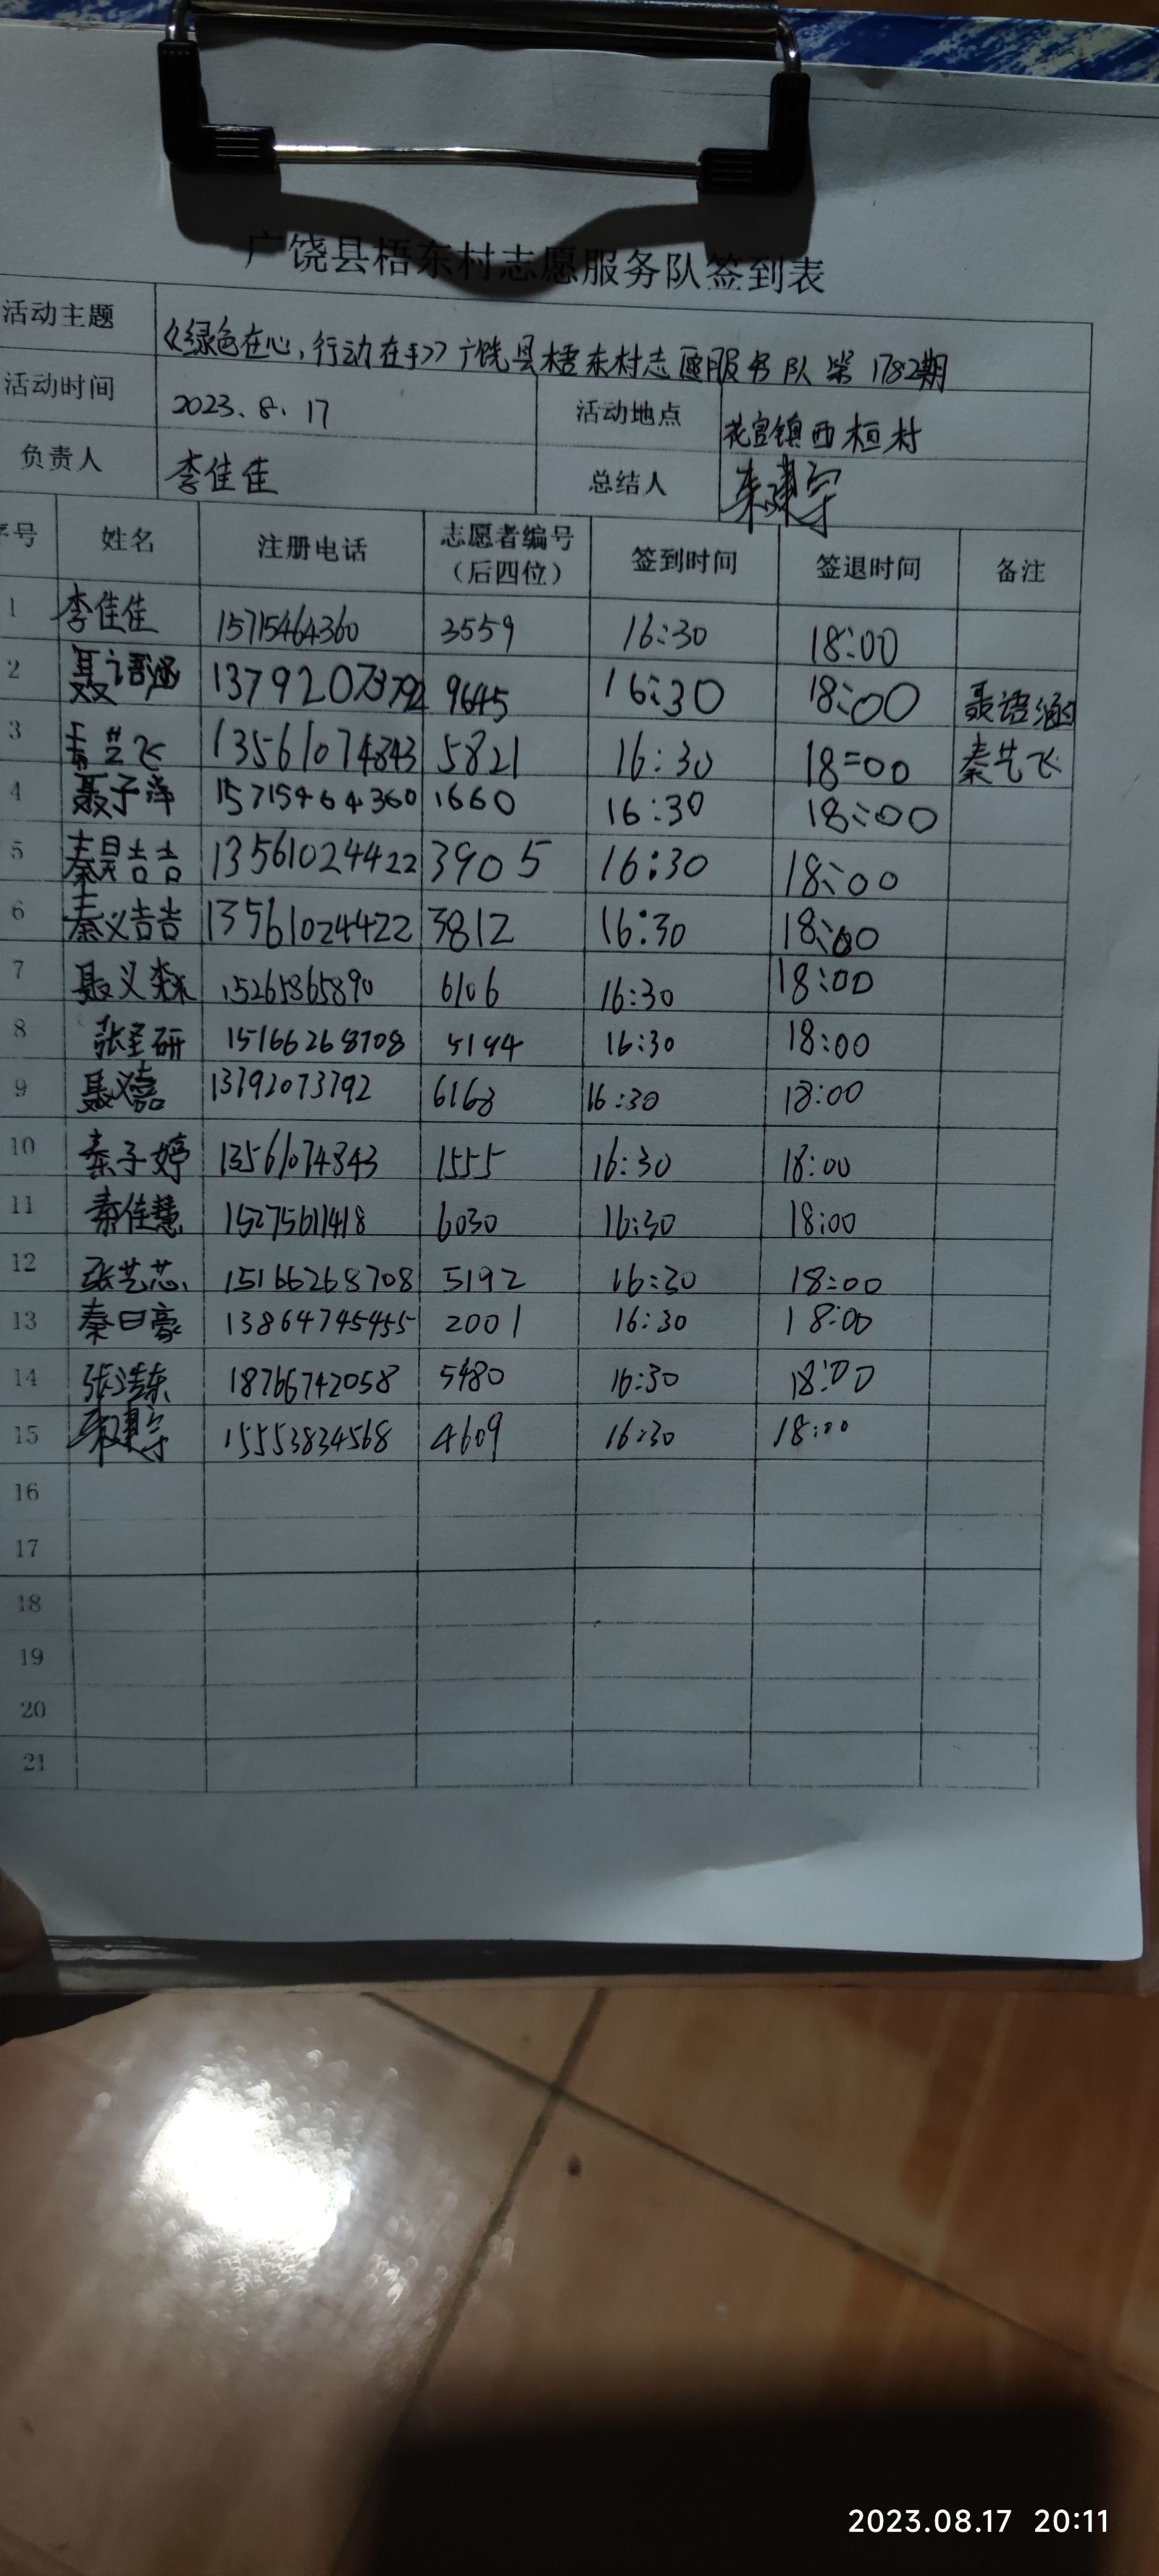 广饶县梧东村志愿服务队签到表
活动主题 《绿色在心,行动在手》广饶县梧东村志愿服务队第1782期
活动时间 2023.8.17 活动地点 花官镇西桓村
负责人 李佳佳 总结人
序号 姓名 注册电话 志愿者编号(后四位) 签到时间 签退时间 备注
1 李佳佳 15715464360 3559 16:30 18:00
2 聂语涵 13792073792 9645 16:30 18:00 聂语涵
3 13561074843 5821 16:30 18=00 秦艺飞
4 聂子洋 15715464360 1660 16:30 18:00
5 秦昊吉吉 13561024422 3905 16:30 18:00
6 秦义吉吉 13561024422 3812 16:30 18:00
7 聂义森 15265865890 6106 16:30 18:00
8 张圣研 15166268708 5194 16:30 18:00
9 聂义嘉 13792073792 6163 16:30 18:00
10 秦子婷 13561074843 1555 16:30 18:00
11 秦佳慧 15275611418 6030 16:30 18:00
12 张艺芯 15166268708 5192 16:30 18:00
13 秦日豪 13864745455 2001 16:30 18:00
14 张浩东 18766742058 5480 16:30 18:00
15 15553834568 4609 16:30 18:00
16
17
18
19
20
21
2023.08.17 20:11